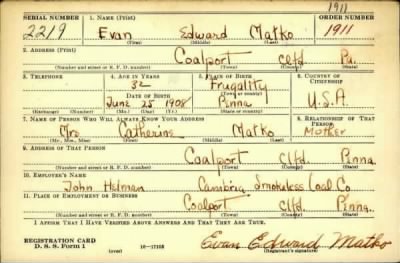 1911
SERIAL NUMBER 1. NAME (Print) ORDER NUMBER
2219 Evan Edward Matko 1911
(First) (Middle) (Last)
2. ADDRESS (Print)
Coalport Clfd. Pa.
(Number and street or R. F. D. number) (Town) (County) (State)
3. TELEPHONE 4. AGE IN YEARS 5. PLACE OF BIRTH 6. COUNTRY OF CITIZENSHIP
32 Frugality
DATE OF BIRTH (Town or county)
June 25 1908 Penna U.S.A.
(Exchange) (Number) (Mo.) (Day) (Yr.) (State or country)
7. NAME OF PERSON WHO WILL ALWAYS KNOW YOUR ADDRESS 8. RELATIONSHIP OF THAT PERSON
Mrs Catherine Matko Mother
(Mr., Mrs., Miss) (First) (Middle) (Last)
9. ADDRESS OF THAT PERSON
Coalport Clfd. Penna.
(Number and street or R. F. D. number) (Town) (County) (State)
10. EMPLOYER'S NAME
John Helman Cambria Smokeless Coal Co.
11. PLACE OF EMPLOYMENT OR BUSINESS
Coalport Clfd. Penna.
(Number and street or R. F. D. number) (Town) (County) (State)
I AFFIRM THAT I HAVE VERIFIED ABOVE ANSWERS AND THAT THEY ARE TRUE.
REGISTRATION CARD
D. S. S. Form 1 (over) 16-17105 Evan Edward Matko
(Registrant's signature)